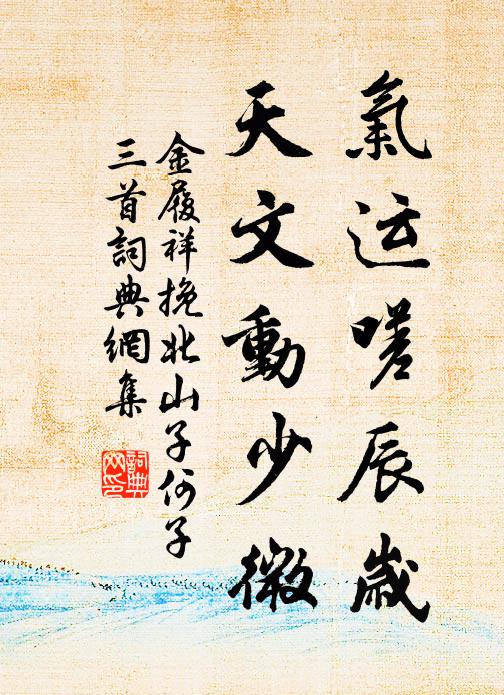 氣运嗟辰歲
天文動少微
金履祥挽北山子何子
三首詞典網集
詞典网印